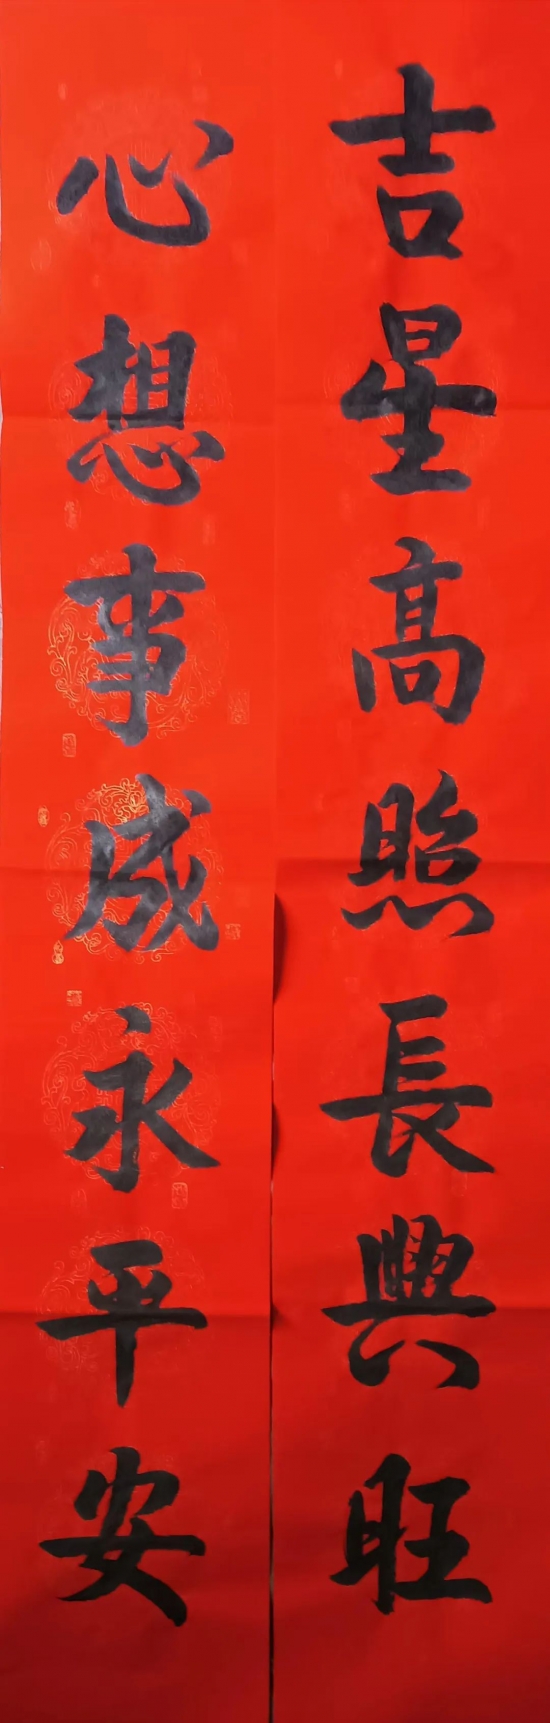 吉星高照長興旺
心想事成永平安